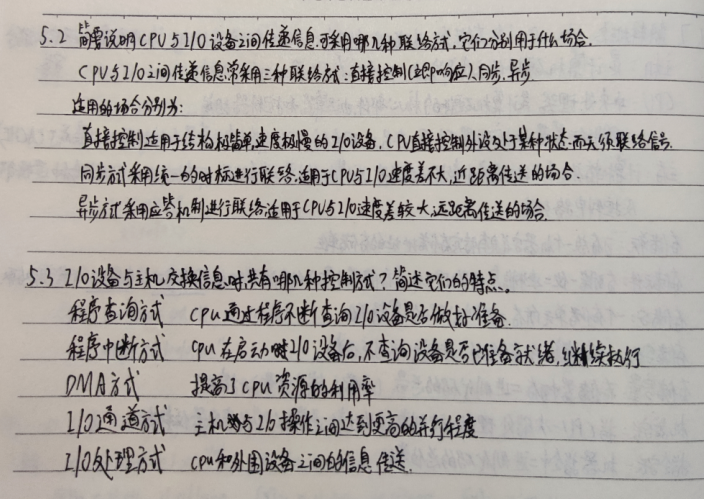 5.2 简要说明CPU与I/O设备之间传递信息可采用哪几种联络方式,它们分别用于什么场合.
CPU与I/O之间传递信息常采用三种联络方式:直接控制(立即响应)、同步、异步
适用的场合分别为:
直接控制适用于结构极简单、速度极慢的I/O设备.CPU直接控制外设处于某种状态而无须联络信号.
同步方式采用统一的时标进行联络,适用于CPU与I/O速度差不大,近距离传送的场合.
异步方式采用应答机制进行联络,适用于CPU与I/O速度差较大,远距离传送的场合.
5.3 I/O设备与主机交换信息时,共有哪几种控制方式?简述它们的特点.
程序查询方式 CPU通过程序不断查询I/O设备是否做好准备.
程序中断方式 CPU在启动I/O设备后,不查询设备是否已准备就绪,继续执行
DMA方式 提高了CPU资源的利用率
I/O通道方式 主机与I/O操作之间达到更高的并行程度
I/O处理方式 CPU和外围设备之间的信息传送.